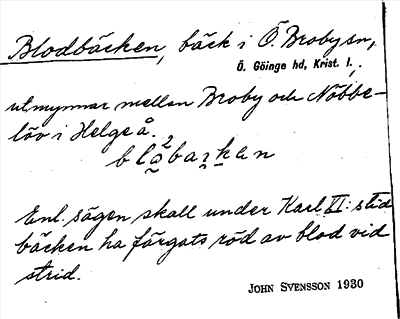 Blodbäcken, bäck i Ö. Broby sn,
Ö. Göinge hd, Krist. l.,
utmynnar mellan Broby och Nöbbe-
löv i Helge å.
Enl. sägen skall under Karl XI:s tid
bäcken ha färgats röd av blod vid
strid.
JOHN SVENSSON 1930